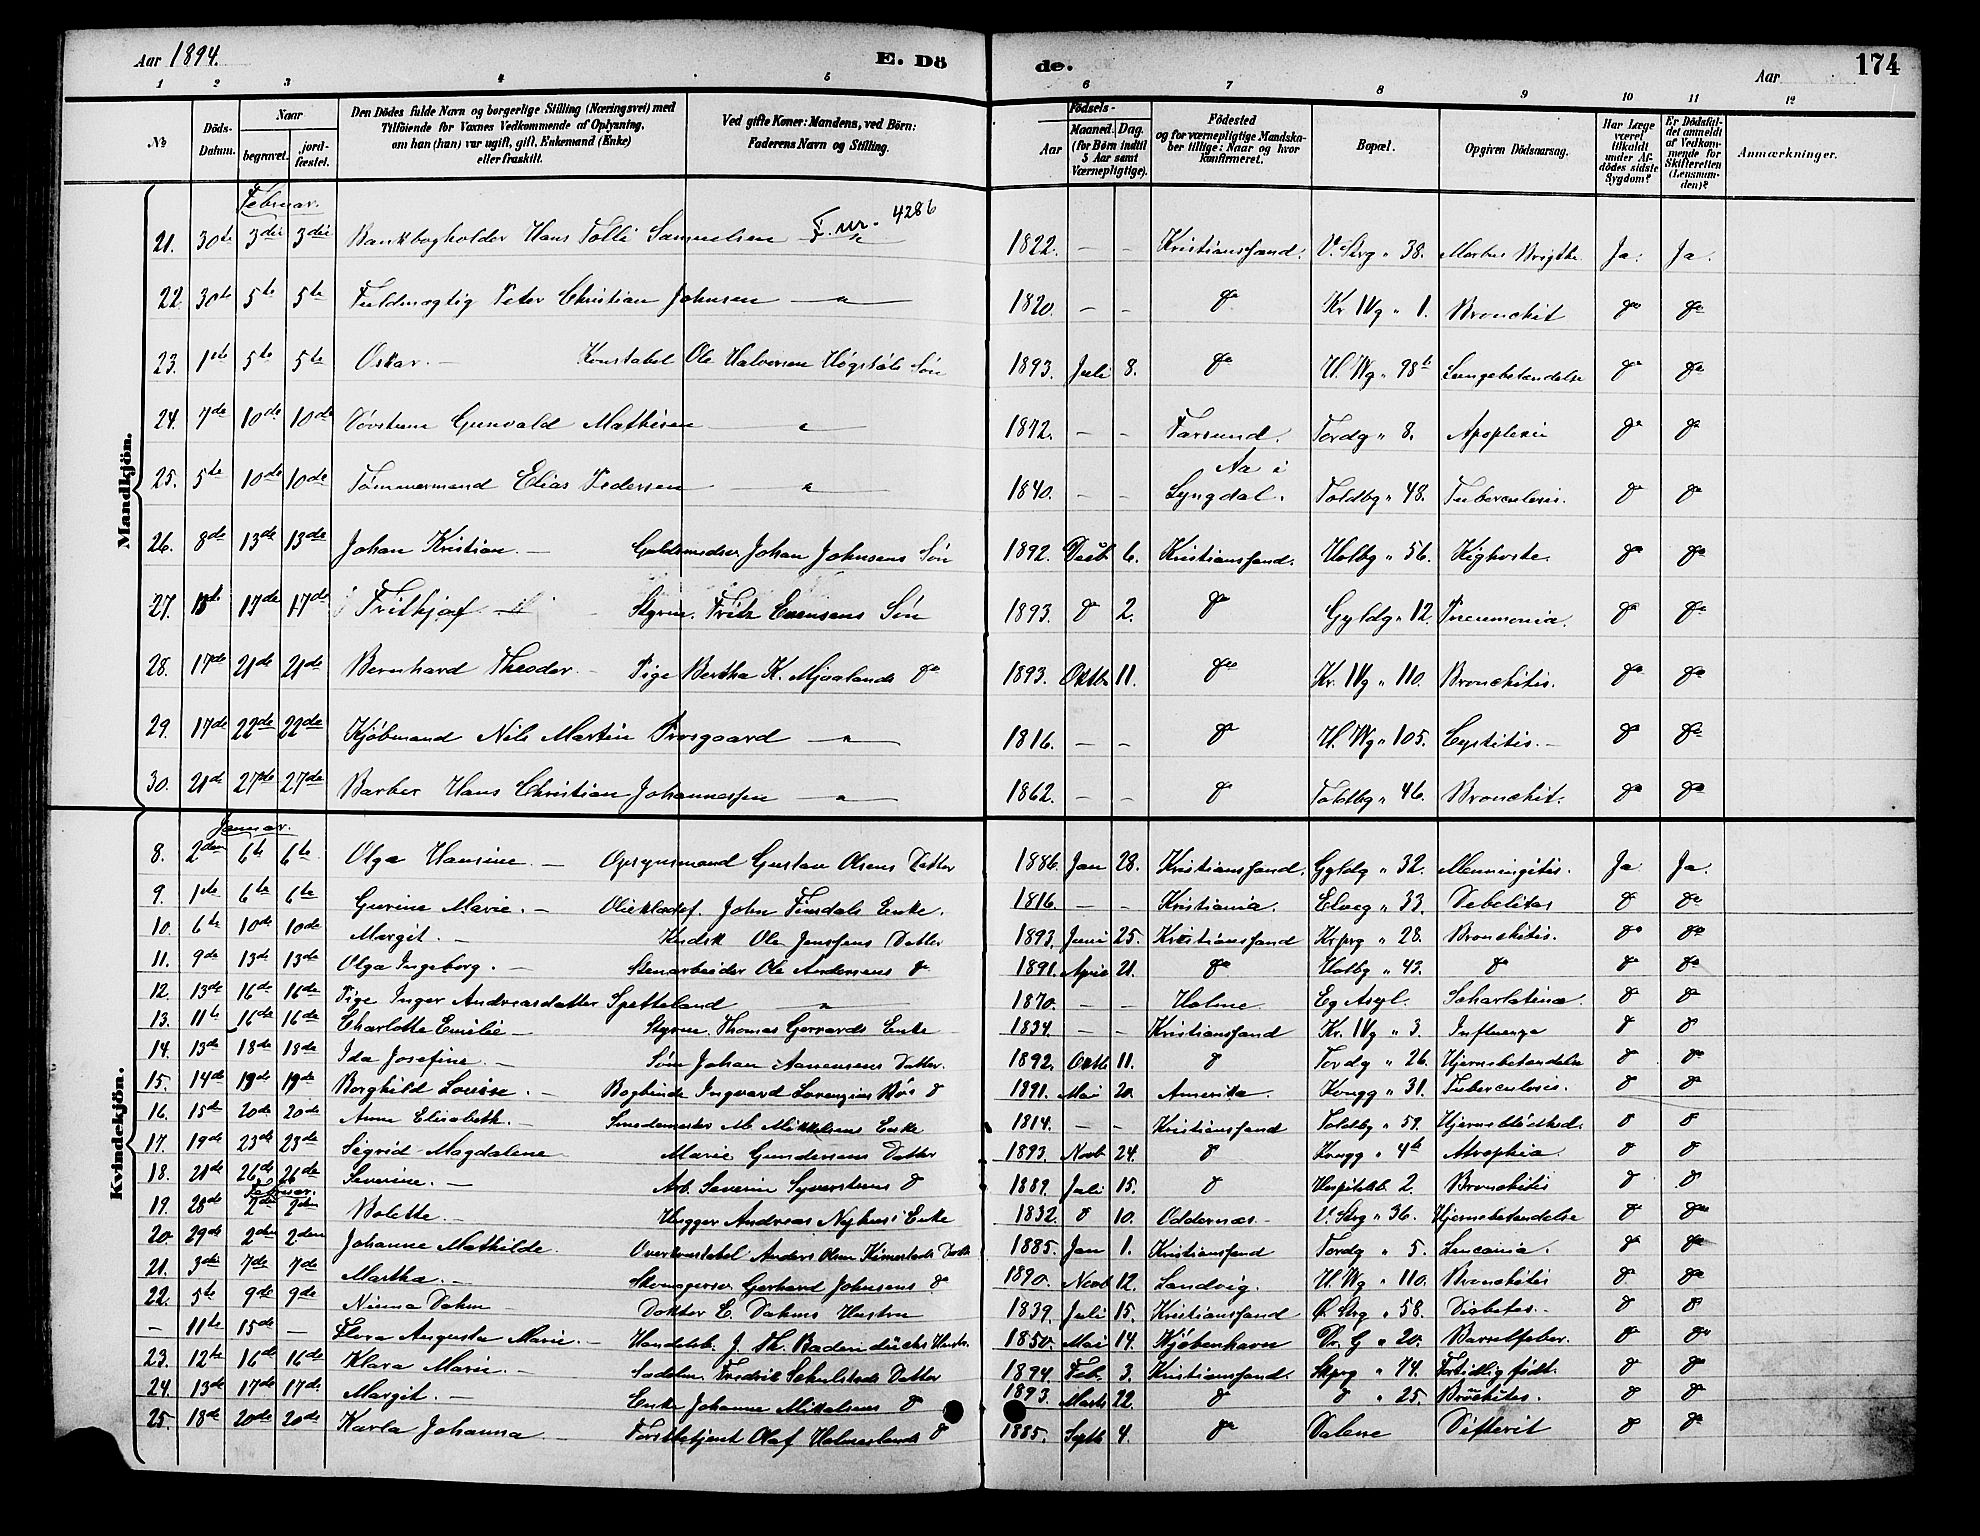 Aar 1894. E. Dö de. Aar 174
1 2 3 4 5 6 7 8 9 10 11 12
№ Döds-Datum. Naar begravet. jordfæstet. Den Dödes fulde Navn og borgerlige Stilling (Næringsvei) med Tilföiende for Voxnes Vedkommende af Oplysning, om han (hun) var ugift, gift, Enkemand (Enke) eller fraskilt. Ved gifte Koner: Mandens, ved Börn: Faderens Navn og Stilling. Födsels- Aar Maaned. Dag. (for Börn indtil 5 Aar samt Værnepligtige). Födested og for værnepligtige Mandskaber tillige: Naar og hvor konfirmeret. Bopæl. Opgiven Dödsaarsag. Har Læge været tilkaldt under Afdödes sidste Sygdom? Er Dödsfaldet anmeldt af Vedkommende for Skifteretten (Lensmanden)? Anmærkninger.
Mandkjön.
Februar.
21. 30te 3die 3die Bankbogholder Hans Tolli Samuelsen F. nr. 4286 1822. – – Kristianssand. V. Strg " 38. Morbus Brigthi Ja. Ja.
22. 30te 5te 5te Fuldmægtig Peter Christian Johnsen – " – 1820. – – do Kr. IVg " 1. Bronchit do do
23. 1ste 5te 5te Oskar. – Konstabel Ole Halvorsen Søn 1893. Juli 8. do H. Wg " 98b Lungebetændelse do do
24. 7de 10de 10de Gunvald Mathisen " 1872. – – Farsund. Tordg " 8. Apoplexi do do
25. 5te 10de 10de Tømmermand Elias Pedersen " 1840. – – Aa i Lyngdal. Toldbg " 48. Tuberculosis. do do
26. 8de 13de 13de Johan Kristian. – Guldsmedsv. Johan Johnsens Søn 1892. Decb 6. Kristianssand. Holbg " 56. Kighoste. do do
27. 17de 17de Frithjof. – Styrm. Fritz Evensens Søn 1893. do 2. do Gyldg " 12. Pneumonia. do do
28. 17de 21de 21de Bernhard Theodor – Pige Bertha K. Mjaalands do 1893. Oktb 11. do Kr. IVg " 110. Bronchitis. do do
29. 17de 22de 22de Kjøbmand Nils Martin Prosgaard – " – 1816. – – do H. Wg " 105. Cystitis. – do do
30. 21de 27de 27de Barber Hans Christian Johannessen – " – 1862. – – do Toldbg " 46. Bronchit. do do
Kvindekjön.
Januar.
8. 2den 6te 6te Olga Hansine. – Opsynsmand Gustav Olsens Datter 1886. Jan 28. Kristianssand. Gyldg " 32. Menningitis. Ja Ja.
9. 1ste 6te 6te Gurine Marie. – John Finsdals Enke. 1816. – – Kristiania. Elveg " 33. Debelitas do do
10. 6te 10de 10de Margit. – Kudsk Ole Jenssens Datter 1893. Juni 25. Kristianssand Krprg " 28. Bronchitis. do do
11. 9de 13de 13de Olga Ingeborg. – Stenarbeider Ole Andersens do 1891. April 21. do Holbg " 43. do do do
12. 13de 16de 16de Pige Inger Andreasdatter Spetteland " 1870. – – Holme. Eg Asyl. Scharlatina do do
13. 11te 16de 16de Charlotte Emilie – Styrm. Thomas Gerrards Enke 1834. – – Kristianssand Kr. IVg " 3. Influenza do do
14. 13de 18de 18de Ida Josefine. – Søm Johan Aanensens Datter. 1892. Oktb 11. do Tordg " 26. Hjernebetændelse do do
15. 14de 19de 19de Borghild Lovise. – Bogbinde Ingvard Lorenzius Bø's do 1891. Mai 20. Amerika. Kongg " 31. Tuberculosis. do do
16. 15de 20de 20de Anne Elisabeth. – Smedemester M. Mikkelsens Enke 1814. – – Kristianssand Toldbg " 59. Hjerneblödhed. do do
17. 19de 23de 23de Sigrid Magdalene Marie Gundersens Datter 1893. Novb 24. do Kongg " 4b Atrophia. do do
18. 21de 26de 26de Severine. – Arb. Severin Syvertsens do 1889. Juli 15. do Hospitalb 2. Bronchitis do do
Februar.
19. 28de 2den 2den Bolette. – Andreas Nyhus' Enke 1832. do 10. Oddernæs – V. Strg " 36. Hjernebetændelse do do
20. 29de 2den 2den Johanne Mathilde. Overkonstabel Anders Olsen Datter 1885. Jan 1. Kristianssand Tordg " 5. Leucæmia. do do
21. 3die 7de 7de Martha. – Skomagersv Gerhard Johnsens do 1890. Novb 12. Sandvig. H. Wg " 110. Bronchitis do do
22. 5te 9de 9de Ninna Dahm – Doktor E. Dahms Hustru 1839. Juli 15. Kristianssand Ø. Strg " 58. Diabetes. – do do
– 11te 15de – Flora Augusta Marie. – Handelsb. J. Th. Hustr. 1850. Mai 14. Kjøbenhavn Dr. G " 20. Barselfeber. do do
23. 12te 16de 16de Klara Marie. – Sadelm. Fredrik Schulstads Datter 1894. Feb. 3. Kristianssand. Skprg " 74. Fortidlig født. do do
24. 13de 17de 17de Margit. – Enke Johanne Mikalsens do 1893. Marts 22. do do " 25. Bronchites. do do
25. 18de 20de 20de Karla Johanna Forstbetjent Olaf Holmeslands do 1885. Septb 4. do Dalene Difterit do do